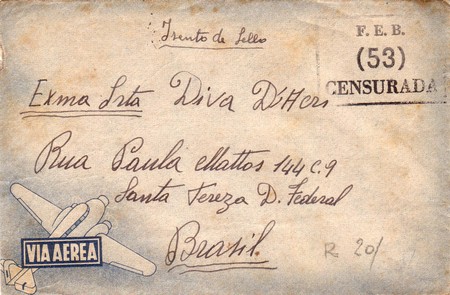 Isento de Sello
F. E. B.
(53)
CENSURADA
Exma Srta Diva D'Aeri
Rua Paula Mattos 144 C. 9
Santa Tereza D. Federal
Brasil.
VIA AEREA
R 20/-